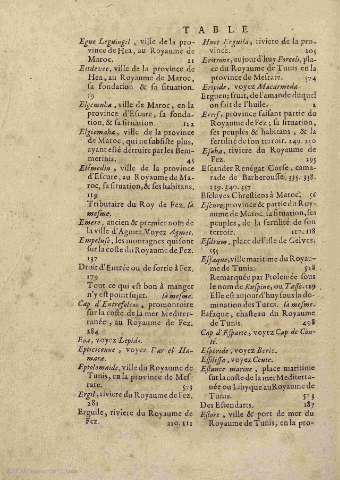 TABLE
Egue Leguingil, ville de la pro-
vince de Hea, au Royaume de
Maroc. 21
Eitdevet, ville de la province de
Hea, au Royaume de Maroc,
sa fondation & sa situation.
19
Elgemuha, ville de Maroc, en la
province d'Escure, sa fonda-
tion, & sa situation. 122
Elgiemaha, ville de la province
de Maroc, qui ne subsiste plus,
ayant esté détruite par les Beni-
merinis. 45
Elemedin, ville de la province
d'Escure, au Royaume de Ma-
roc, sa situation, & ses habitans.
119
Tributaire du Roy de Fez. là
mesme.
Emere, ancien & premier nom de
la ville d'Agmet. Voyez Agmet.
Empeluse, les montagnes qui sont
sur la coste du Royaume de Fez.
137
Droit d'Entrée ou de sortie à Fez.
179
Tout ce qui est bon à manger
n'y est point sujet. là mesme.
Cap d'Entrefolcos, promontoire
sur la coste de la mer Mediter-
ranée, au Royaume de Fez.
284
Epa, voyez Lepide.
Epicicenne, voyez Tar el Ha-
mara.
Eptolomaide, ville du Royaume de
Tunis, en la province de Mes-
rate. 513
Ergil, riviere du Royaume de Fez.
281
Erguile, riviere du Royaume de
Fez. 210, 211
Huet Erguila, riviere de la pro-
vince. 205
aujourd'huy Forcels, pla-
ce du Royaume de Tunis en la
province de Mesrate. 574
Eripide, voyez Macarmeda.
Erguen, fruit, de l'amande duquel
on fait de l'huile. 2
Errif, province faisant partie du
Royaume de Fez; sa situation,
ses peuples & habitans, & la
fertilité de son terroir. 249. 250
Esaha, riviere du Royaume de
Fez. 195
Escander Renégat Corse, camara-
de de Barberousse. 335. 338.
339. 340. 357
Esclaves Chrestiens à Maroc. 56
Escure, province & partie du Roy-
aume de Maroc, la situation, ses
peuples, de la fertilité de son
terroir. 117. 118
place de l'Isle de Gelves.
555
Esfaque, ville maritime du Royau-
me de Tunis. 528
Remarquée par Ptolemée sous
le nom de Ruspine, ou Tafre. 529
Elle est aujourd'huy sous la do-
mination des Turcs. là mesme.
Esfaque, chasteau du Royaume
de Tunis. 498
Cap d'Esparte, voyez Cap de Con-
te.
Esperide, voyez Beric.
voyez Ceute.
Estance marine, place maritime
sur la coste de la mer Mediterra-
née ou Libyque au Royaume de
Tunis. 513
Des Estendarts. 187
Estore, ville & port de mer du
Royaume de Tunis, en la pro-